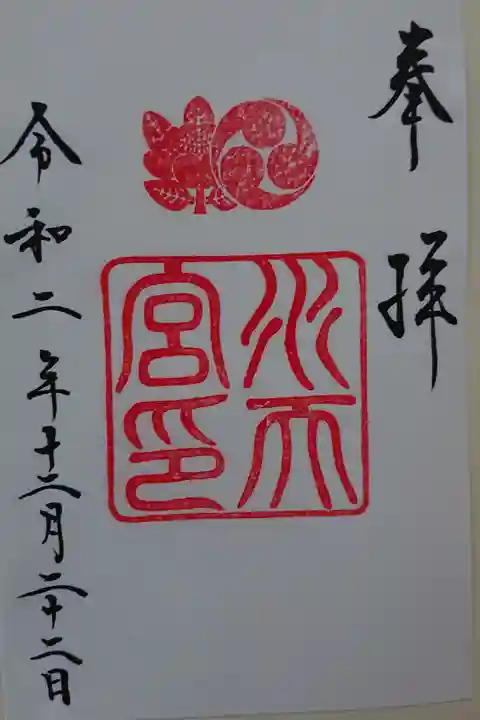 奉拝
水天宮印
令和二年十二月二十二日